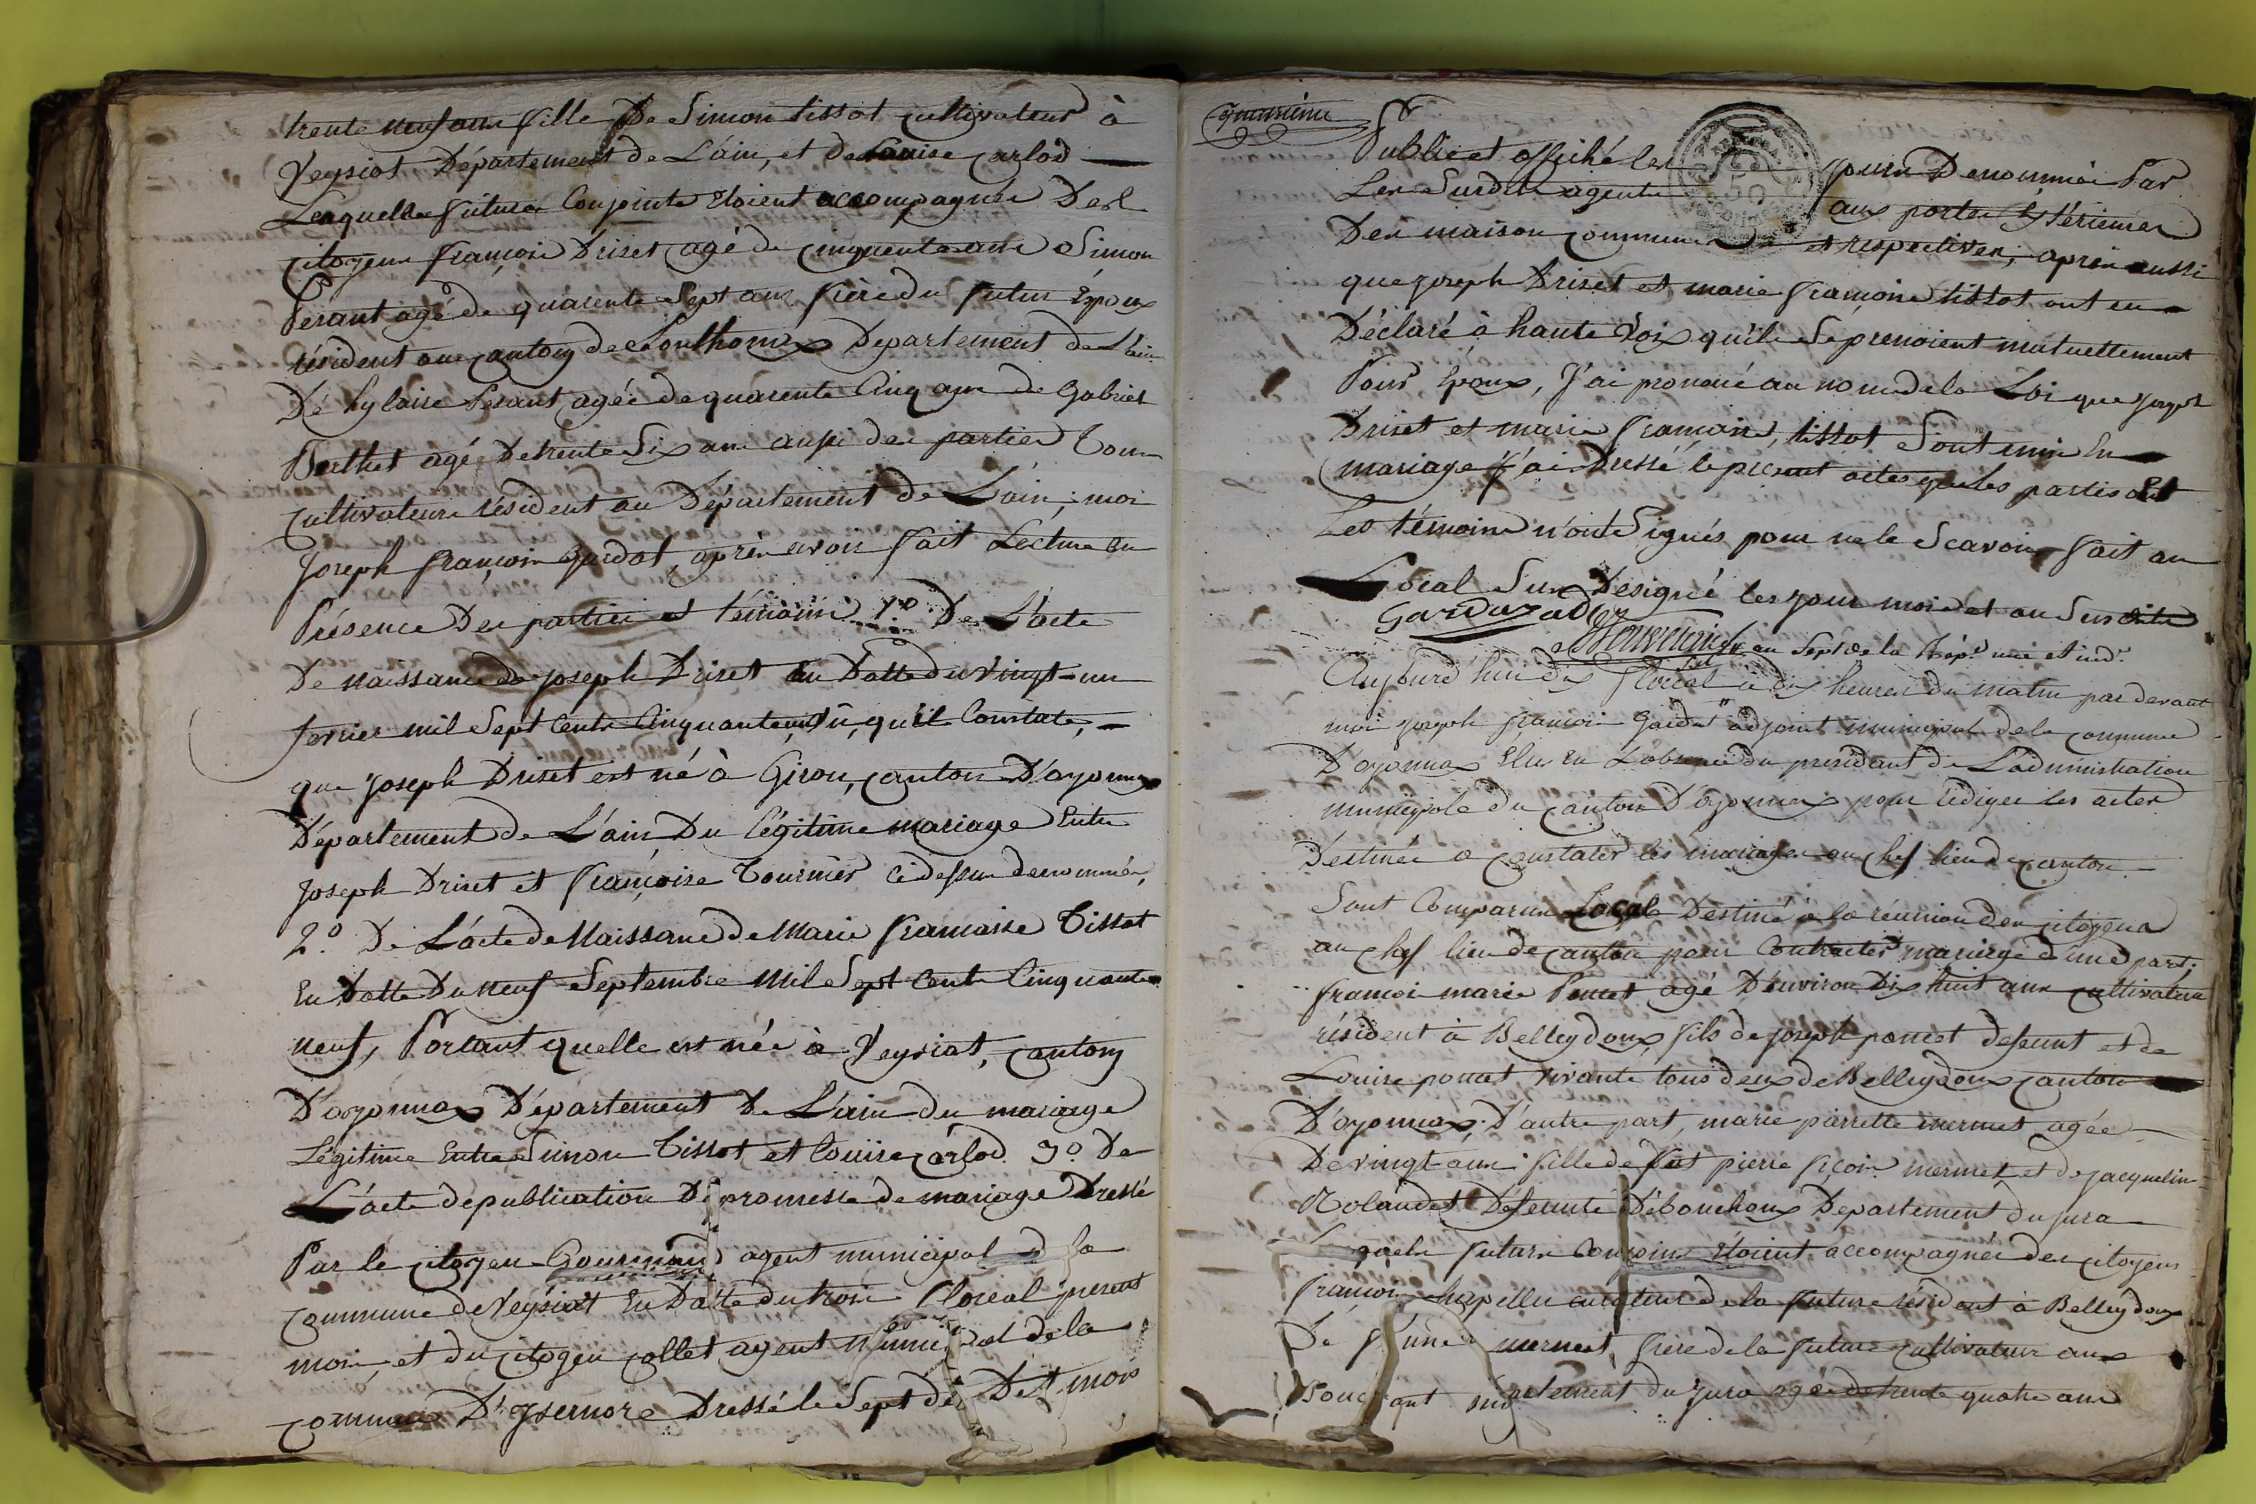 trente neuf ans fille De Simon tissot cultivateur à
Veysiat Département de L'ain, et de Louise Carlod
Lesquelles futurs Conjoints Etoient accompagnés Des
citoyens françois Driset agé de cinquente ans Simon
Perant agé de quarente Sept ans frère du futur Epoux
résident au canton de Département de L'ain
De hylaire Perant agée de quarente Cinq ans de Gabriel
Berthet agé De trente Six ans aussi des parties Tous
cultivateurs résident au Département de L'ain; moi
Joseph françois gardot, après avoir fait Lecture en
Présence Des parties et témoins 1.º De L'acte
De naissance de joseph Driset En Datte du vingt-un
fevrier mil Sept Cents Cinquante, qu'il Constate,
que joseph Driset est né à Giron, canton D'oyonnax
Département de L'ain Du légitime mariage Entre
joseph Driset et françoise Tournier ci dessus denommés,
2.º De L'acte de Naissance de Marie françoise Tissot
En Datte Du neuf Septembre Mil Sept Cents Cinquante
neuf, Portant quelle est née à Veysiat, canton
D'oyonnax Département De L'ain du mariage
Légitime Entre Simon Tissot et Louise Carlod. 3.º De
L'acte de publication De promesse de mariage Dressé
Par le citoyen Gourmand agent municipal d la
commune de Veysiat En Datte du trois floreal présent
mois, et du citoyen collet agent municipal de la
commune D'ysernore Dressé le Sept des Dt mois
Publié et affiché les jours Denommés Par
Les Surdits agents aux portes Extérieures
Des maisons communes et respectives, après aussi
que joseph Driset et marie françoise tissot ont eu
Déclaré à haute voix qu'ils Se prenoient mutuellement
Pour Epoux, J'ai prononcé au nom de la Loi que joseph
Driset et marie françoise tissot Sont unis En
mariage & j'ai Dressé le présent actes que les parties et
Les témoins n'ont Signés pour ne le Scavoir fait au
Local Sus Designé les jour mois et an Susdits
Gardoz adj
an Sept de la Rép. une et ind.
Aujourd'hui dix floréal à dix heures du matin par devant
moi joseph françois Gardot adjoint municipal de la commune
D'oyonnax Elu En L'absence du président de L'administration
municipale du canton D'oyonnax pour rédiger les actes
Destinés a constater les mariages au chef lieu de canton
Sont Comparus Local Destiné à la réunion des citoyens
au chef lieu de canton pour Contracter mariage d'une part,
françois marie Poncet agé D'environ Dix huit ans cultivateur
résident à Belleydoux, fils de joseph poncet défeunt et de
Louise poncet vivante tous deux de Belleydoux canton
D'oyonnax; D'autre part, marie pierrette mermet agée
De vingt ans fille de fut pierre fçois mermet et de jacqueline
Rolandet Défeunte Débouchoux Département du jura
Lesquels futurs Conjoins Etoient accompagnés des citoyens
françois chapellu curateur de la future résident à Belleydoux
De mermet, frère de la future cultivateur aux
Bouchoux département du jura agée de trente quatre ans